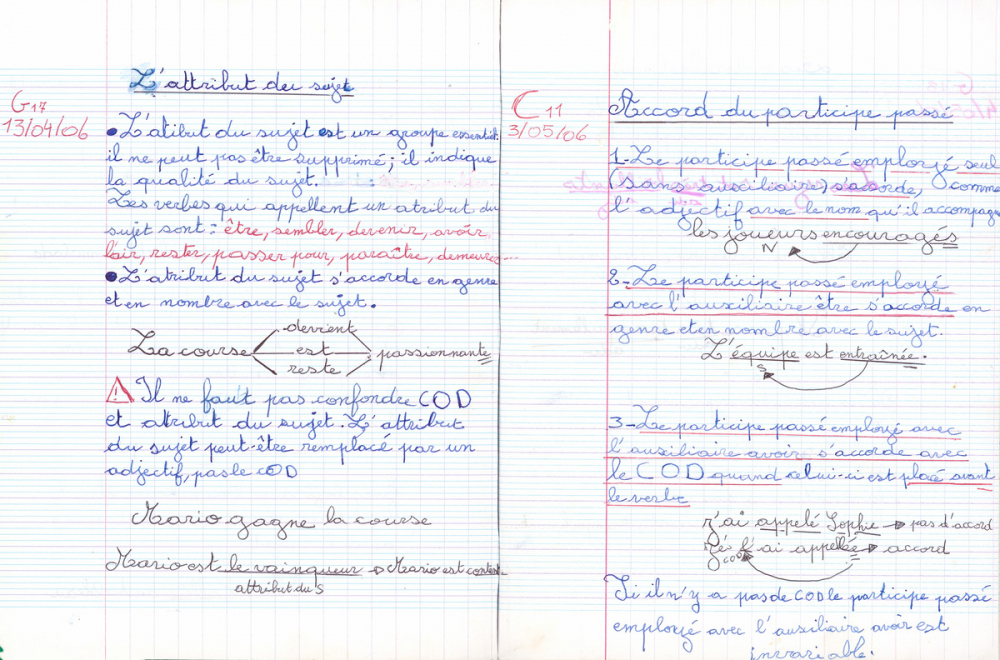 L'attribut du sujet
G17
13/04/06
•L'atibut du sujet est un groupe essentiel:
il ne peut pas être supprimé; il indique
la qualité du sujet.
Les verbes qui appellent un atribut du
sujet sont: être, sembler, devenir, avoir
l'air, rester, passer pour, paraître, demeurer...
•L'atribut du sujet s'accorde en genre
et en nombre avec le sujet.
devient
La course est passionnante
reste
! Il ne faut pas confondre COD
et attribut du sujet. L'attribut
du sujet peut-être remplacé par un
adjectif, pas le COD
Mario gagne la course
Mario est le vainqueur → Mario est content
attribut du S
C11
3/05/06
Accord du participe passé
1-Le participe passé employé seul
(sans auxiliaire) s'accorde, comme
l'adjectif avec le nom qu'il accompagne
les joueurs encouragés
N
2-Le participe passé employé
avec l'auxiliaire être s'accorde en
genre et en nombre avec le sujet.
L'équipe est entraînée.
S
3-Le participe passé employé avec
l'auxiliaire avoir s'accorde avec
le COD quand celui-ci est placé avant
le verbe
J'ai appelé Sophie → pas d'accord
Je l'ai appelée → accord
COD
Si il n'y a pas de COD le participe passé
employé avec l'auxiliaire avoir est
invariable.